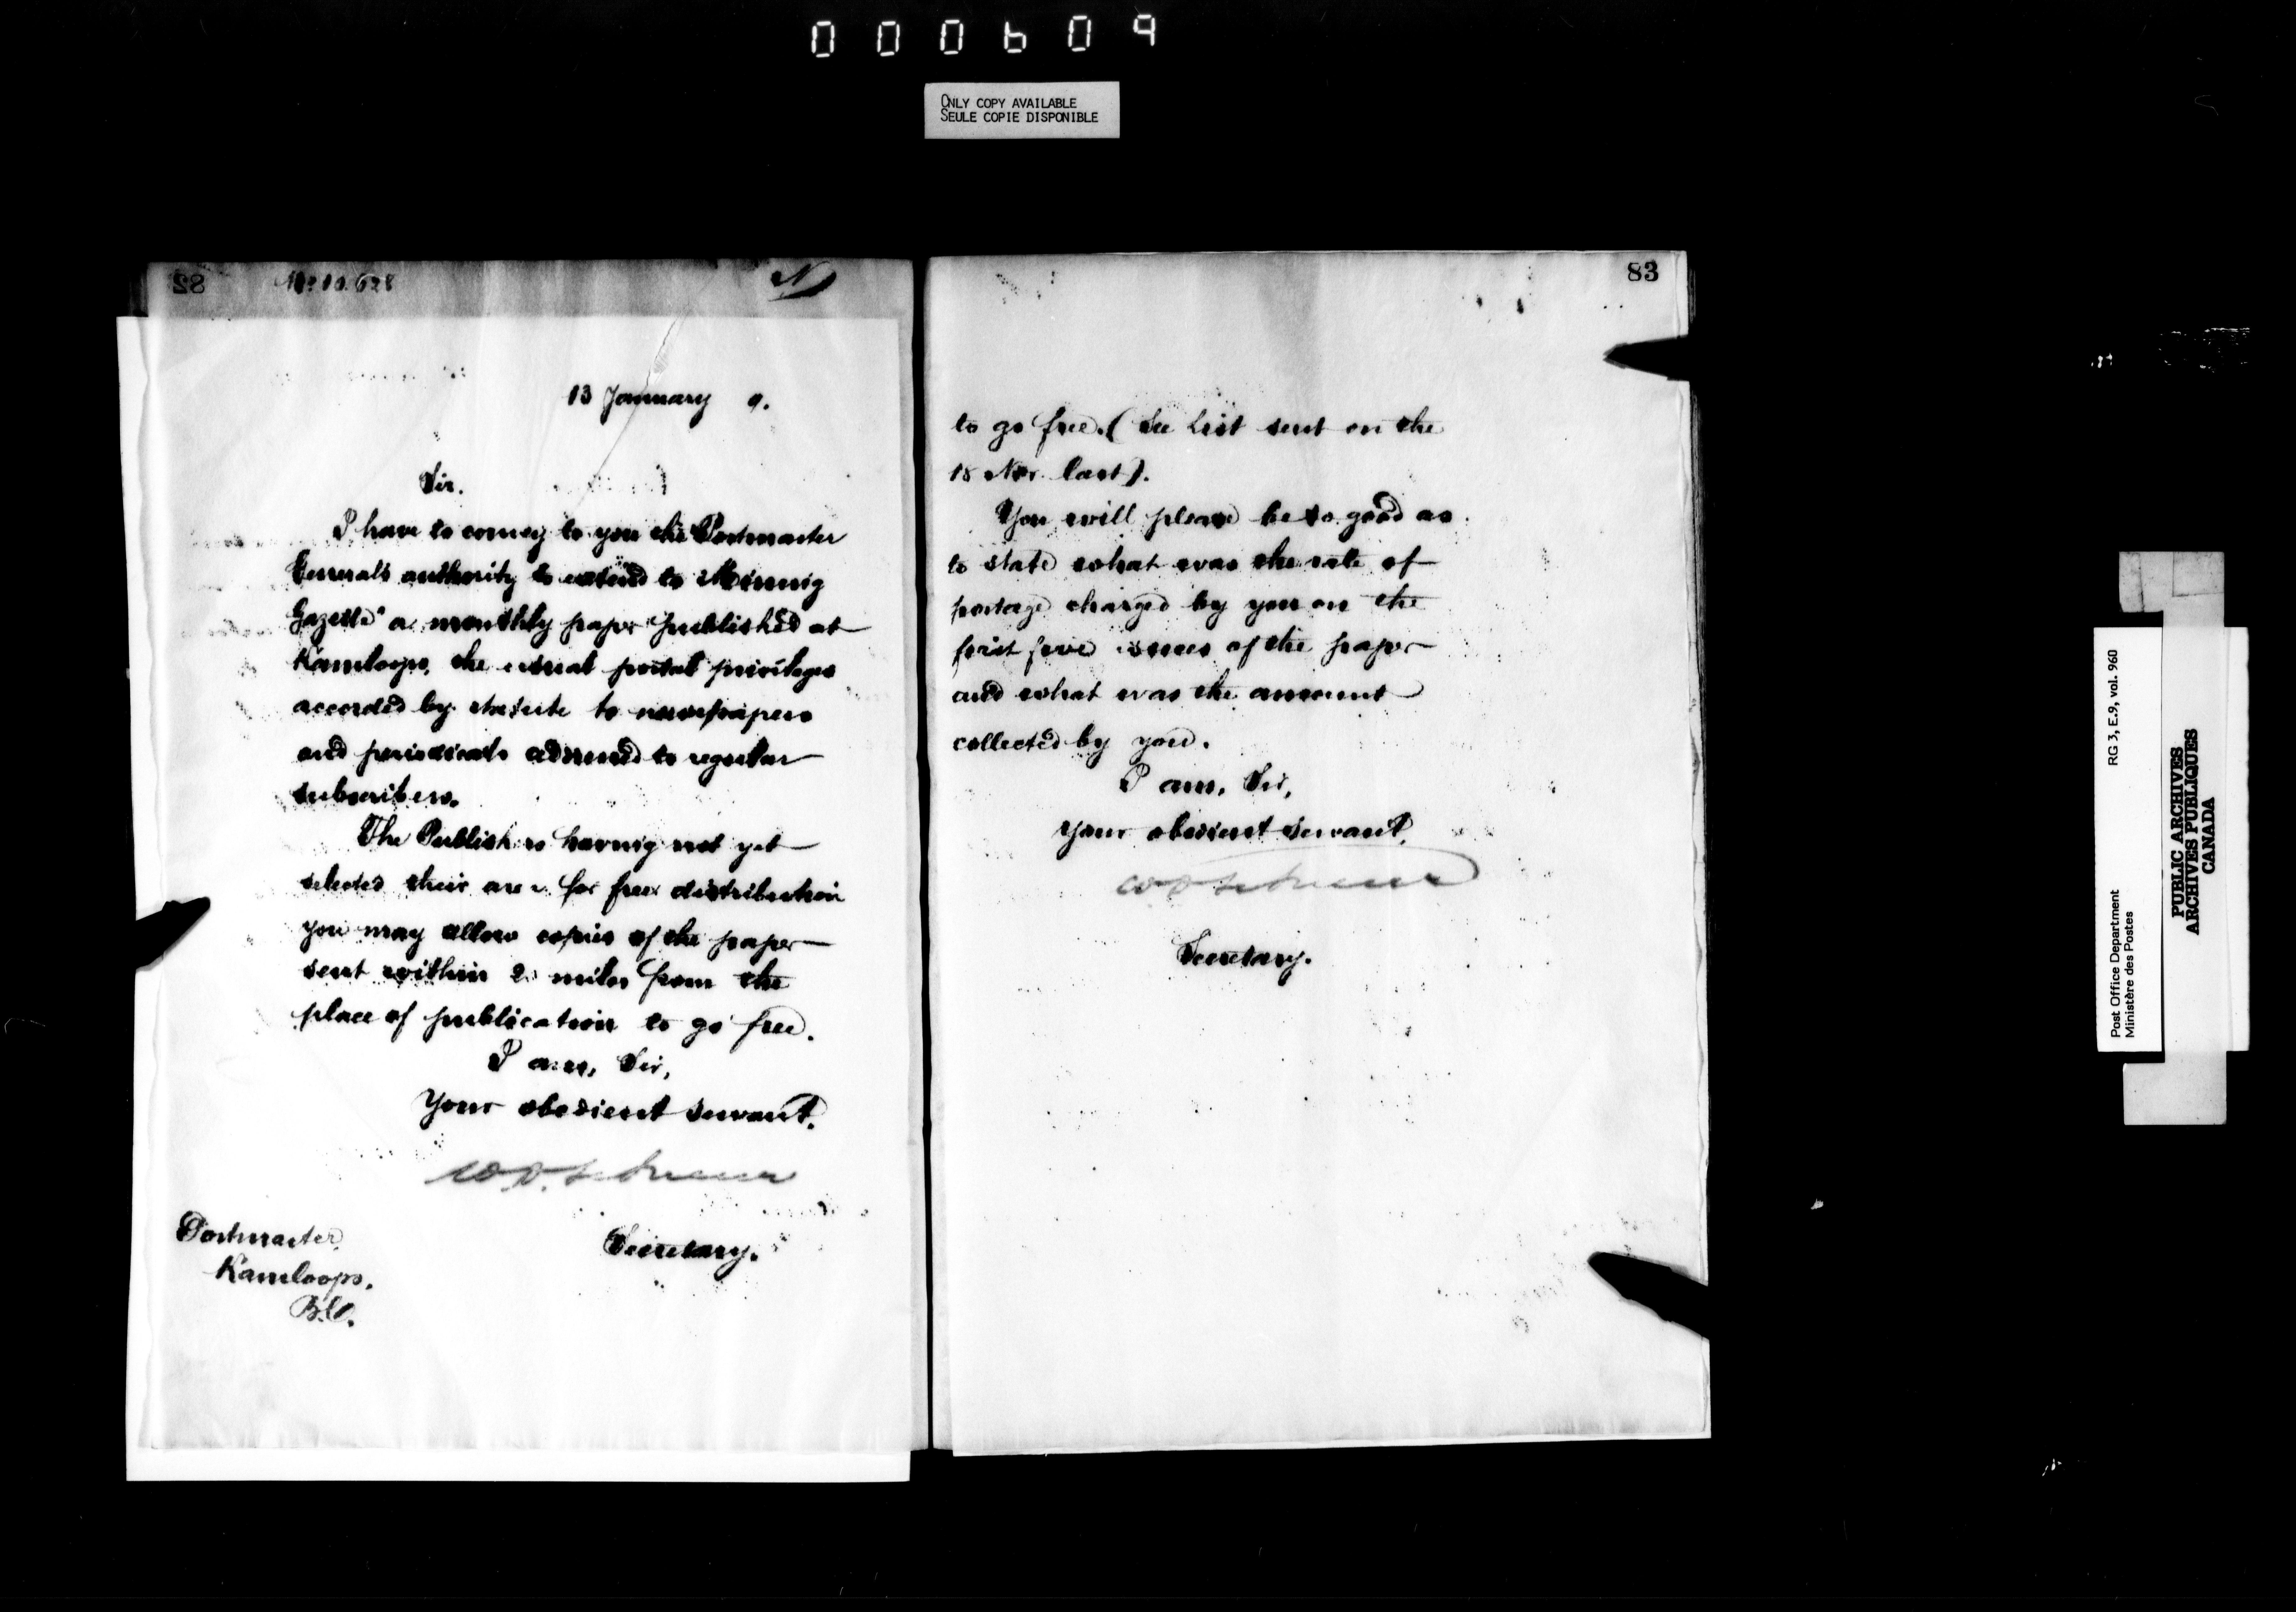 000609
ONLY COPY AVAILABLE
SEULE COPIE DISPONIBLE
82
No 10.628
N
13 January 9.
Sir.
I have to convey to you the Postmaster
General's authority to extend to "Mining
Gazette" a monthly paper published at
Kamloops, the usual postal privileges
accorded by statute to newspapers
and periodicals addressed to regular
subscribers.
The Publishers having not yet
selected their area for free distribution
you may allow copies of the paper
sent within 20 miles from the
place of publication to go free.
I am, Sir,
Your obedient servant.
Secretary.
Postmaster
Kamloops.
B.C.
83
to go free. (See List sent on the
18 Nov. last).
You will please be so good as
to state what was the rate of
postage charged by you on the
first five issues of the paper
and what was the amount
collected by you.
I am, Sir,
your obedient servant.
Secretary.
Post Office Department
Ministère des Postes
RG 3, E.9, vol. 960
PUBLIC ARCHIVES
ARCHIVES PUBLIQUES
CANADA